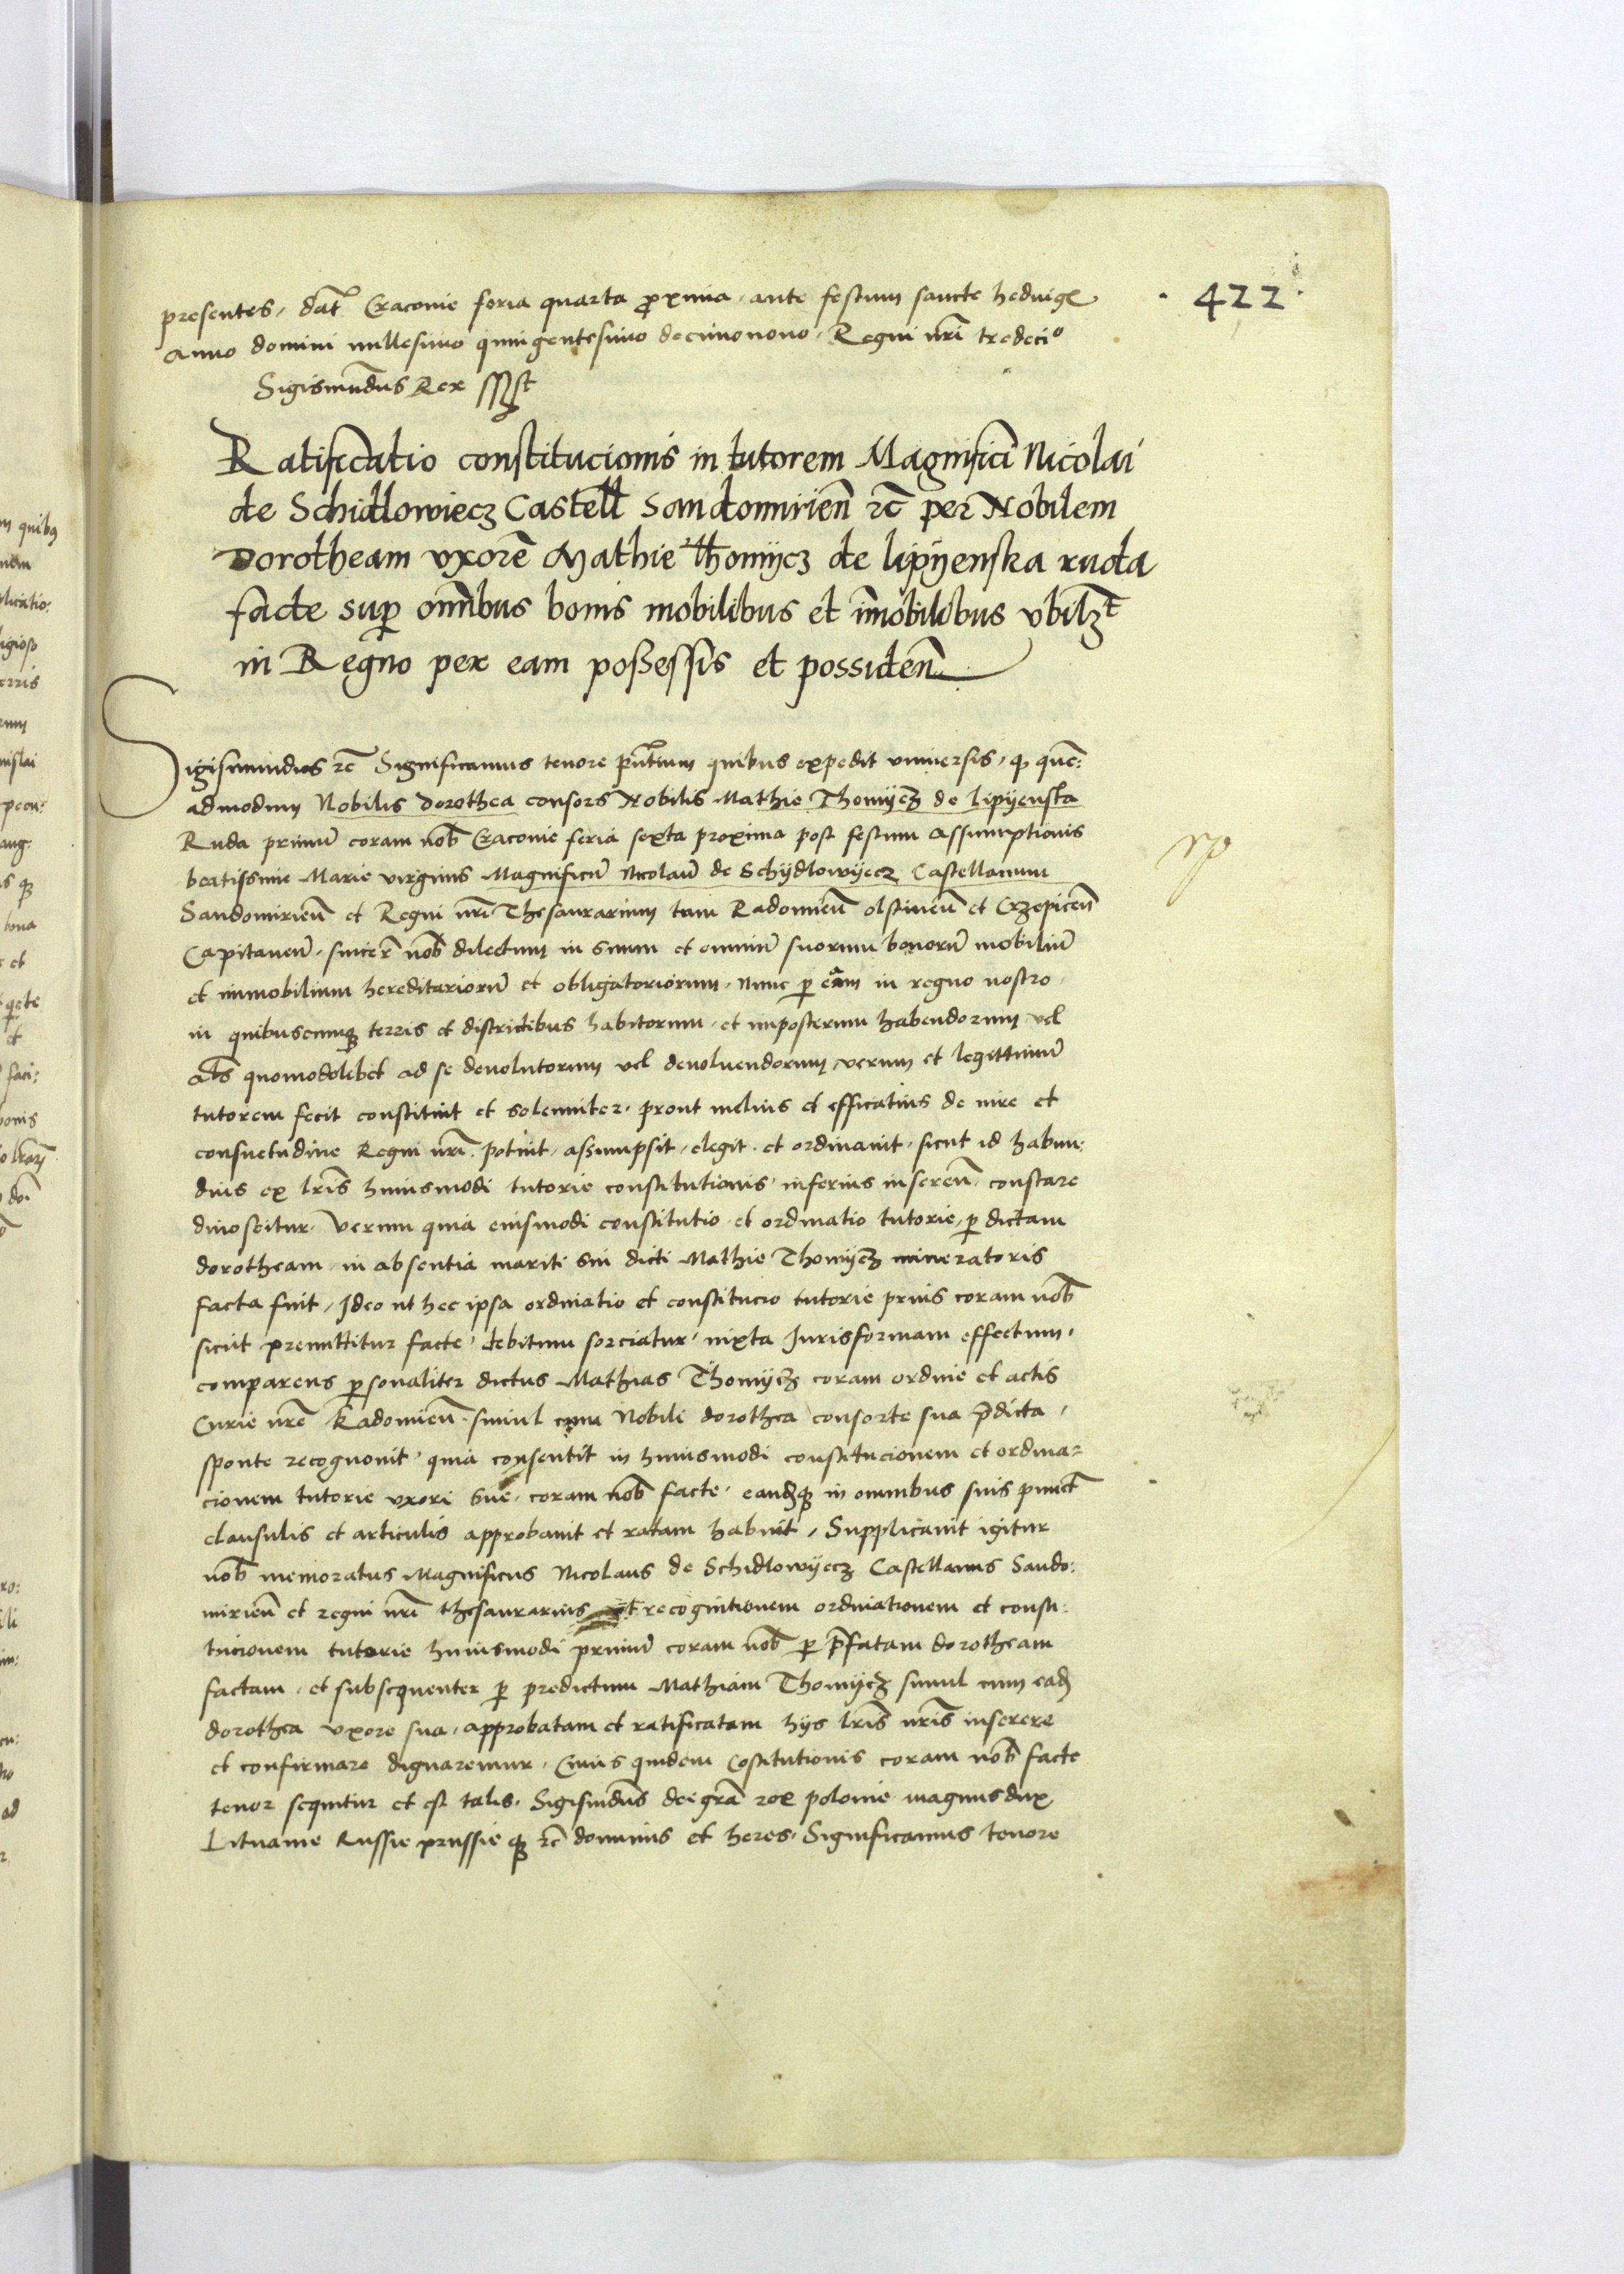 presentes, dat Cracovie feria quarta proxima ante festum sancte hedvigis
anno domini millesimo quingentesimo decimonono, Regni nri tredecio
Sigismundus Rex sspt
422
Ratificatio constitucionis in tutorem Magnifici Nicolai
de Schidlowiecz Castell Sandomirien rc per Nobilem
Dorotheam vxorē Mathie Thomijcz de lipijenska ruda
facte sup omnibus bonis mobilibus et īmobilibus vbilzt
in Regno per eam possessis et possiden
Sigismundus rc Significamus tenore pntium quibus expedit vniuersis, q quē:
admodum Nobilis dorothea consors Nobilis Mathie Thomijcz de lipijenska
Ruda primū coram nob Cracovie feria sexta proxima post festum Assumptionis
beatissime Marie virginis Magnificū Nicolaū de Schijdlowijecz Castellanum
Sandomirien et Regni nri Thesaurarium tum Radomien olstinen et Crzepicen
Capitaneū, sincere nob dilectum in suum et omniū suorum bonorū mobiliū
et immobilium hereditariorū et obligatoriorum, nunc p eam in regno nostro
in quibuscumq terris et districtibus habitorum, et imposterum habendorum vel
als quomodolibet ad se deuolutorum vel deuoluendorum, verum et legittimū
tutorem fecit constituit et solemniter, prout melius et efficatius de iure et
consuetudine Regni nri potuit, assumpsit, elegit, et ordinauit, sicut id habun:
dius ex lris huiusmodi tutorie constitutionis inferius inseren constare
dinoscitur. Verum quia eiusmodi constitutio et ordinatio tutorie, p dictam
dorotheam in absentia mariti sui dicti Mathie Thomijcz mineratoris
facta fuit, Ideo ut hec ipsa ordinatio et constitucio tutorie prius coram nob
sicut premittitur facte, debitum sorciatur, iuxta Jurisformam effectum,
comparens psonaliter dictus Mathias Thomijcz coram ordine et actis
Curie nre Radomien, simul cum Nobili dorothea consorte sua pdicta,
sponte recognouit, quia consentit in huiusmodi constitucionem et ordina=
cionem tutorie vxori sue, coram nob facte, eandq in omnibus suis punct
clausulis et articulis approbauit et ratam habuit, Supplicauit igitur
nob memoratus Magnificus Nicolaus de Schidlowijecz Castellanus Sando:
mirien et regni nri thesaurarius ut recognitionem ordinationem et consti:
tucionem tutorie huiusmodi primū coram nob p pfatam dorotheam
factam, et subsequenter p predictum Mathiam Thomijcz simul cum ead
dorothea vxore sua, approbatam et ratificatam hijs lris nris inserere
et confirmare dignaremur, Cuius quidem costitutionis coram nob facte
tenor sequitur et est talis. Sigismdus dei gra rex polonie magnus dux
Lituanie Russie prussieq rc dominus et heres, Significamus tenore